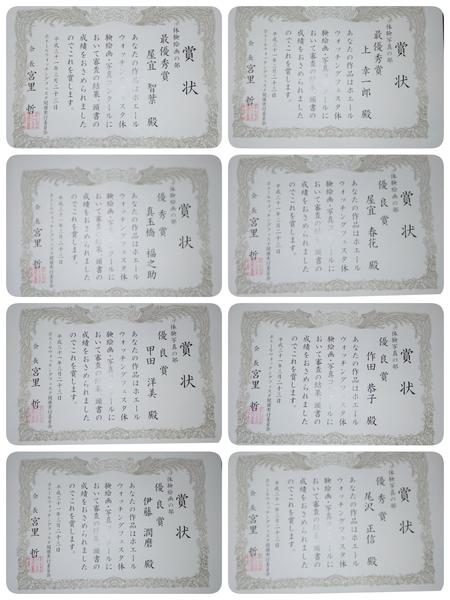 賞状
体験絵画の部
最優秀賞
屋宜 智葉 殿
あなたの作品はホエール
ウォッチングフェスタ体
験絵画・写真コンクールに
おいて審査の結果、頭書の
成績をおさめられました
のでこれを賞します。
平成三十一年三月二十三日
会長 宮里 哲
賞状
体験写真の部
最優秀賞
上 幸一郎 殿
あなたの作品はホエール
ウォッチングフェスタ体
験絵画・写真コンクールに
おいて審査の結果、頭書の
成績をおさめられました
のでこれを賞します。
平成三十一年三月二十三日
会長 宮里 哲
賞状
体験絵画の部
優秀賞
真玉橋 福之助
あなたの作品はホエール
ウォッチングフェスタ体
験絵画・写真コンクールに
おいて審査の結果、頭書の
成績をおさめられました
のでこれを賞します。
平成三十一年三月二十三日
会長 宮里 哲
賞状
体験絵画の部
優良賞
屋宜 春花 殿
あなたの作品はホエール
ウォッチングフェスタ体
験絵画・写真コンクールに
おいて審査の結果、頭書の
成績をおさめられました
のでこれを賞します。
平成三十一年三月二十三日
会長 宮里 哲
賞状
体験写真の部
優良賞
甲田 洋美 殿
あなたの作品はホエール
ウォッチングフェスタ体
験絵画・写真コンクールに
おいて審査の結果、頭書の
成績をおさめられました
のでこれを賞します。
平成三十一年三月二十三日
会長 宮里 哲
賞状
体験写真の部
優良賞
作田 恭子 殿
あなたの作品はホエール
ウォッチングフェスタ体
験絵画・写真コンクールに
おいて審査の結果、頭書の
成績をおさめられました
のでこれを賞します。
平成三十一年三月二十三日
会長 宮里 哲
賞状
体験絵画の部
優良賞
伊藤 潤磨 殿
あなたの作品はホエール
ウォッチングフェスタ体
験絵画・写真コンクールに
おいて審査の結果、頭書の
成績をおさめられました
のでこれを賞します。
平成三十一年三月二十三日
会長 宮里 哲
賞状
体験写真の部
優秀賞
尾沢 正信 殿
あなたの作品はホエール
ウォッチングフェスタ体
験絵画・写真コンクールに
おいて審査の結果、頭書の
成績をおさめられました
のでこれを賞します。
平成三十一年三月二十三日
会長 宮里 哲